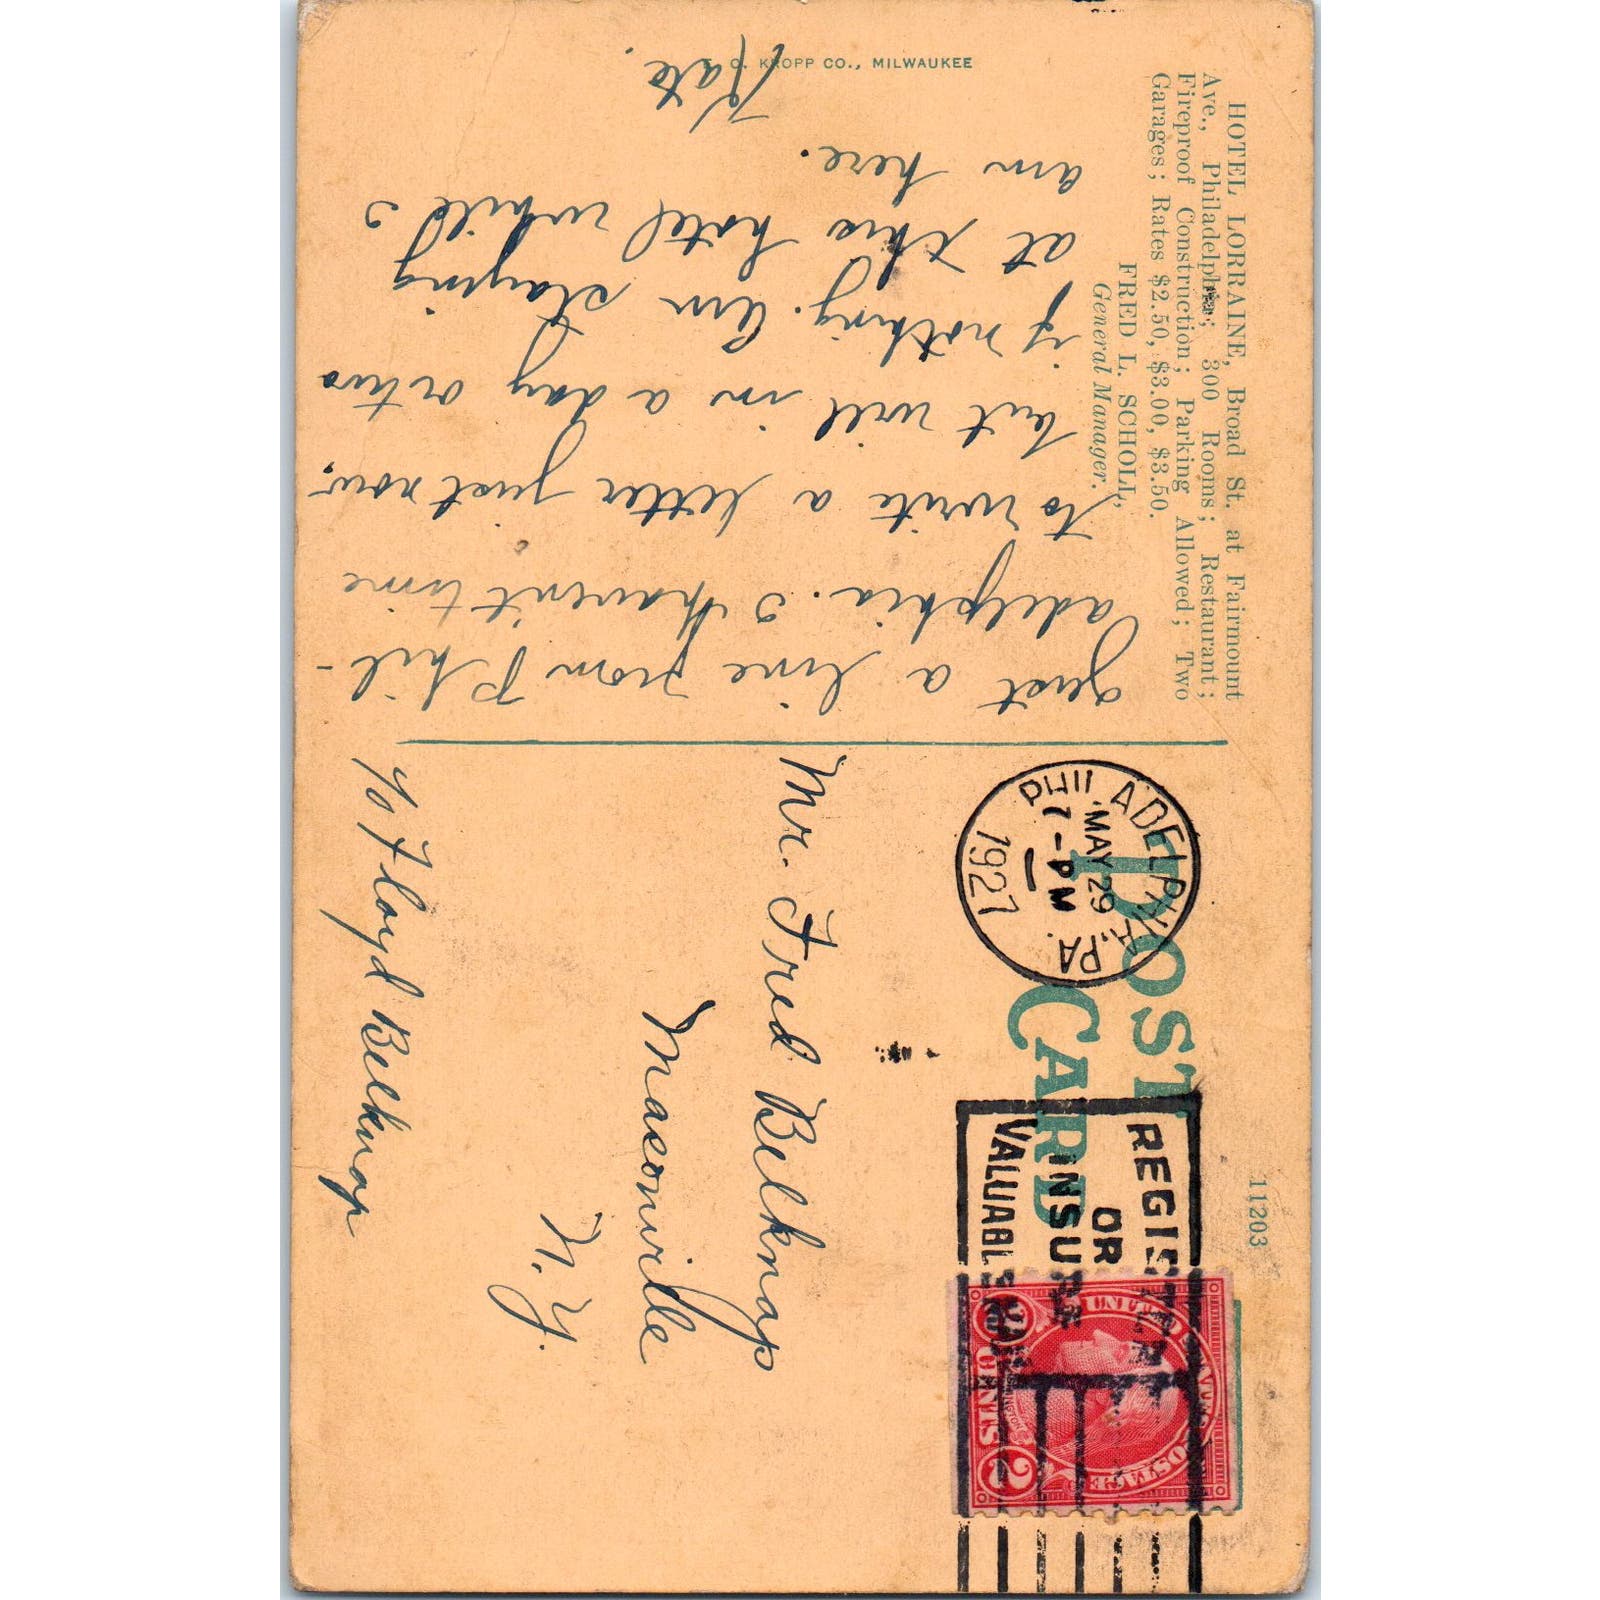 HOTEL LORRAINE, Broad St. at Fairmount
Ave., Philadelphia; 300 Rooms; Restaurant;
Fireproof Construction; Parking Allowed; Two
Garages; Rates $2.50, $3.00, $3.50.
FRED L. SCHOLL,
General Manager.
Just a line from Phil-
adelphia. I haven't time
to write a letter just now,
but will in a day or two
if nothing. Am staying
at this hotel while I
am here.
Kate.
E. C. KROPP CO., MILWAUKEE
POST
CARD
11203
PHILADELPHIA, PA.
MAY 29
7-PM
1927
REGISTER
OR
INSURE
VALUABLE MAIL
UNITED STATES POSTAGE
WASHINGTON
2 CENTS 2
Mr. Fred Belknap
Masonville
N. Y.
c/o Floyd Belknap